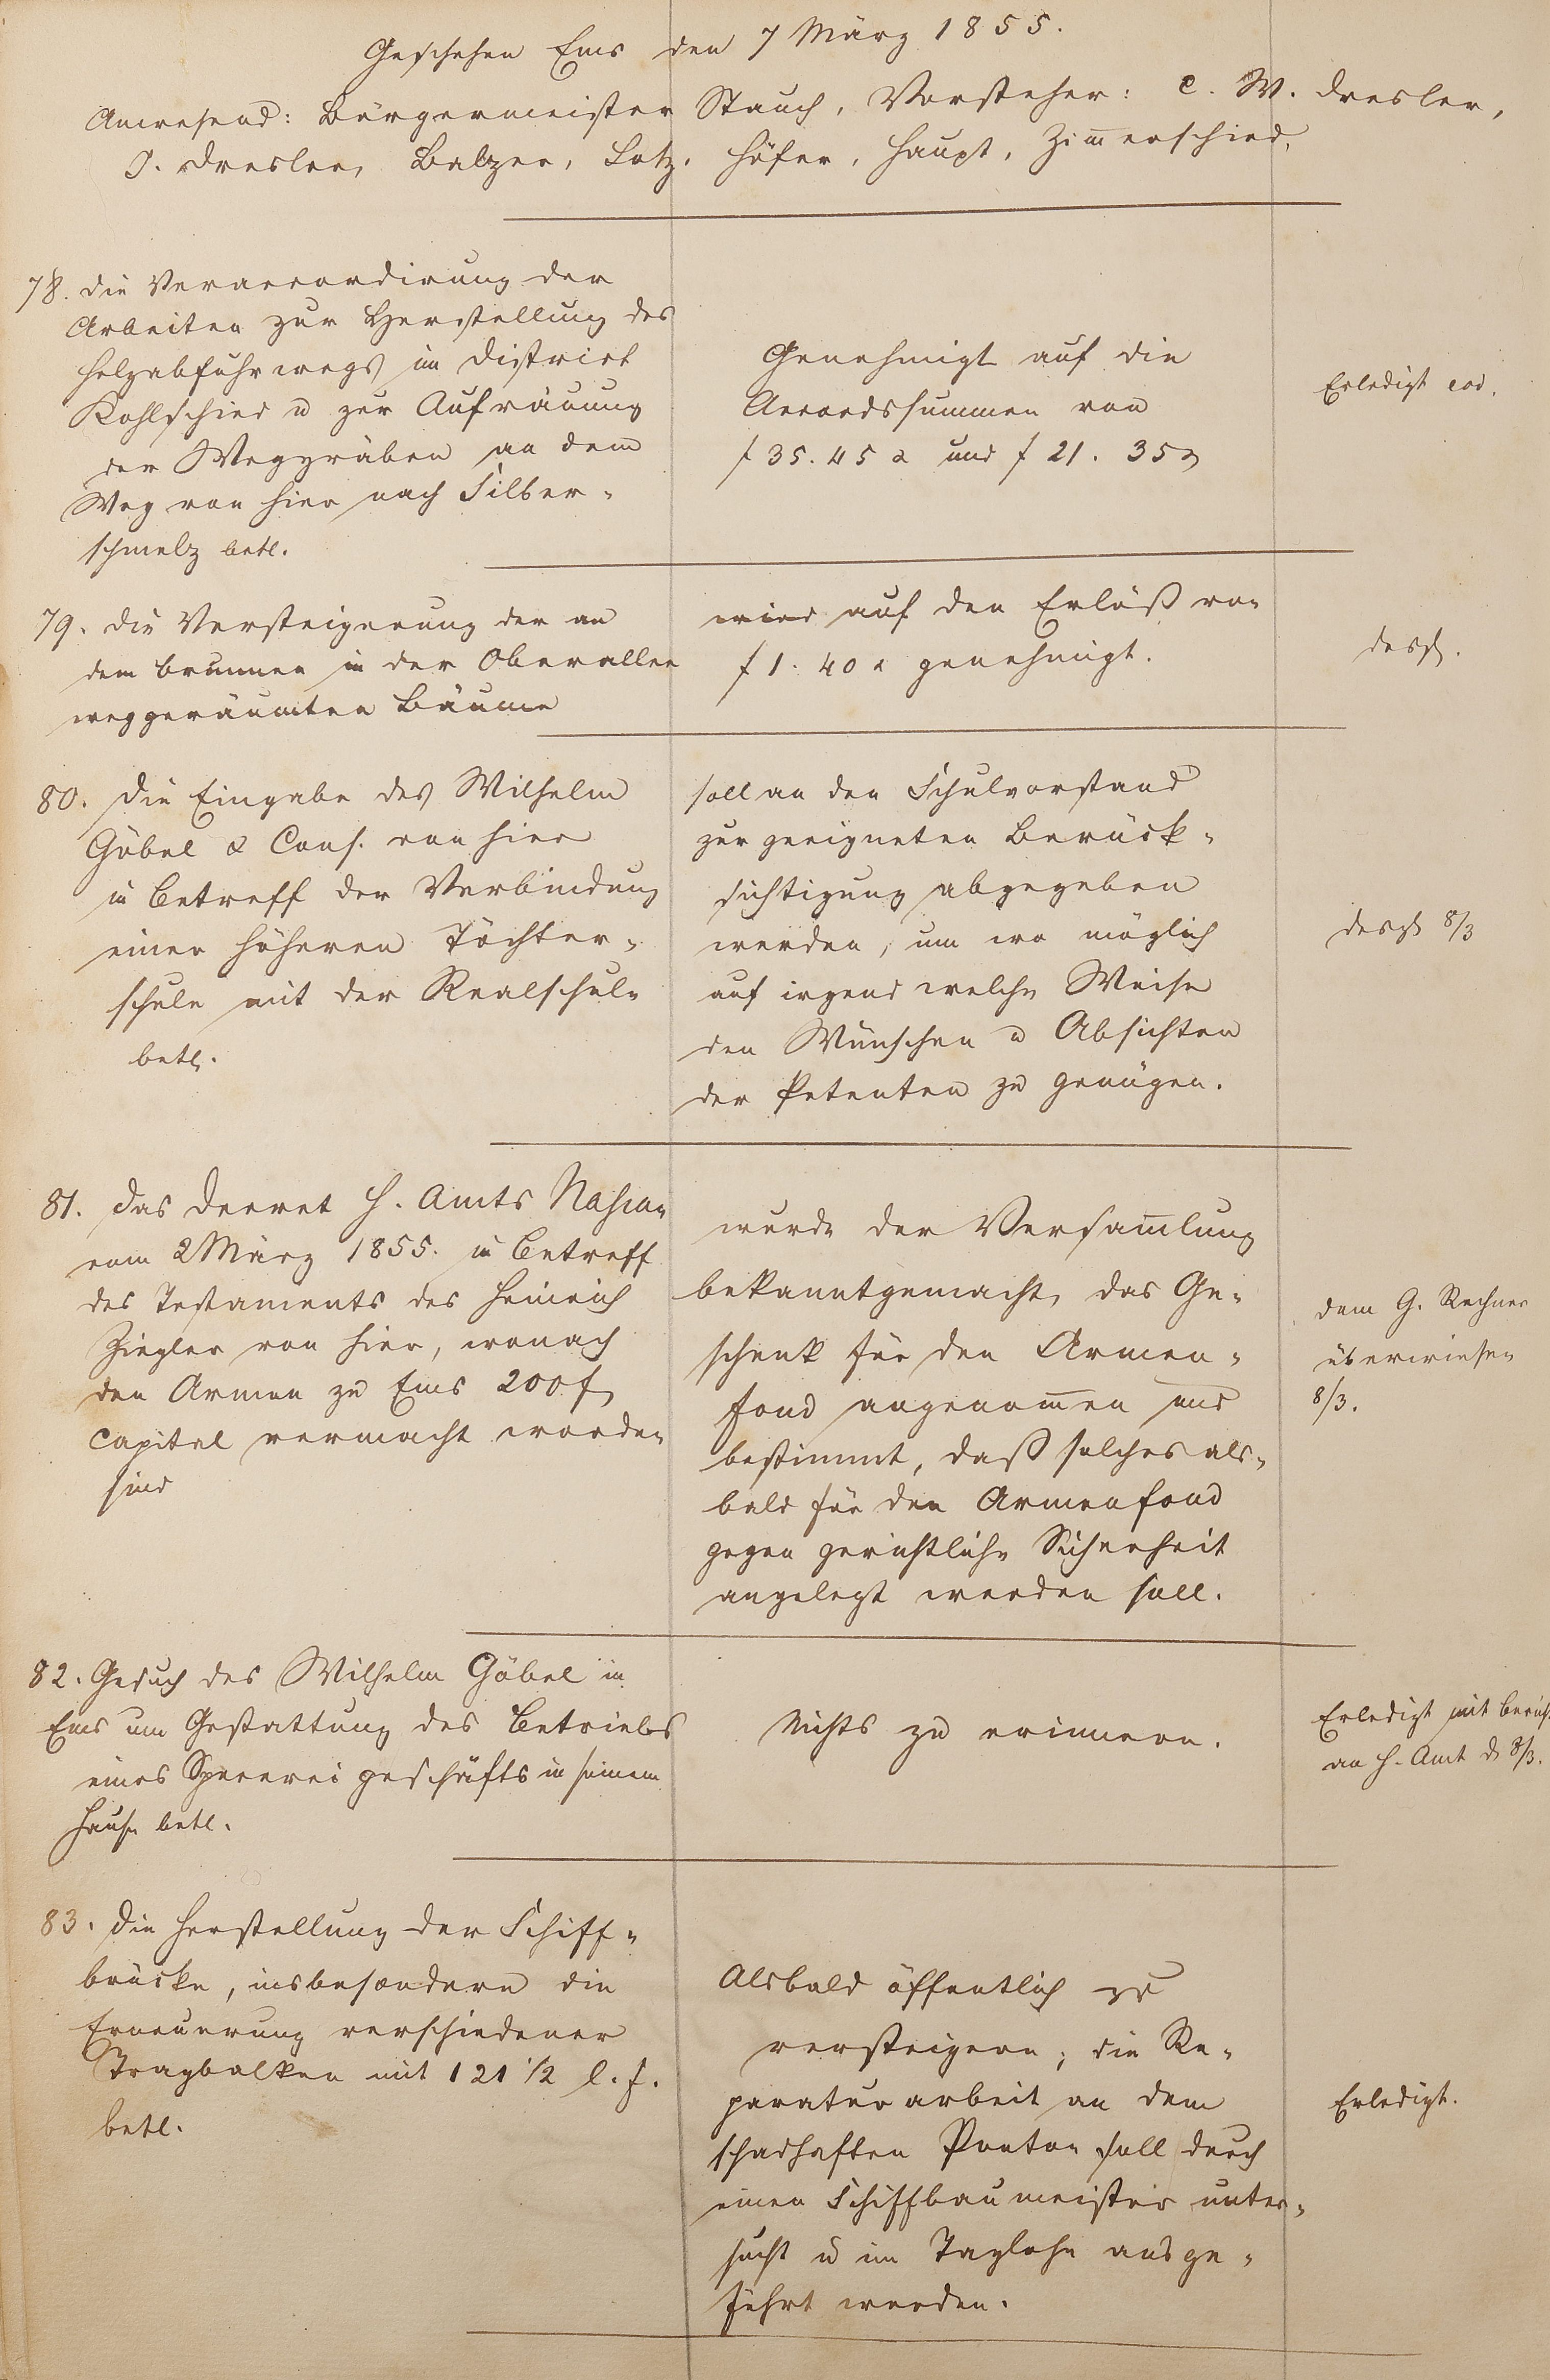 Geschehen Ems den 7 März 1855.
Anwesend: Bürgermeister Stauch, Vorsteher: C. W. Dresler,
J. Dresler, Balzer, Lotz, Höfer, Haupt, Zim̄erschied.
78. Die Veraccordirung der
Arbeiten zur Herstellung des
Holzabfuhrwegs im District
Kohlschied u zur Aufräumung
der Weggräben an dem
Weg von hier nach Silber-
schmelz betr.
Genehmigt auf die
Accordssummen von
f 35. 45 x und f 21. 35 x
Erledigt eod.
79. Die Versteigerung der an
dem Brunnen in der Oberallee
weggeräumten Bäume
wird auf den Erlös von
f 1. 40 x genehmigt.
desgl.
80. Die Eingabe des Wilhelm
Göbel & Cons. von hier
in Betreff der Verbindung
einer höheren Töchter-
schule mit der Realschule
betr.
soll an den Schulvorstand
zur geeigneten Berück-
sichtigung abgegeben
werden, um wo möglich
auf irgend welche Weise
den Wünschen u Absichten
der Petenten zu genügen.
desgl 8/3
81. Das Decret H. Amts Nassau
vom 2 März 1855. in Betreff
des Testaments des Heinrich
Ziegler von hier, wonach
den Armen zu Ems 200 f
Capital vermacht worden
sind
wurde der Versam̄lung
bekanntgemacht, das Ge-
schenk für den Armen-
fond angenom̄en und
bestimmt, daß solches als-
bald für den Armenfond
gegen gerichtliche Sicherheit
angelegt werden soll.
dem G. Rechner
überwiesen
8/3.
82. Gesuch des Wilhelm Göbel in
Ems um Gestattung des Betriebs
eines Spezereigeschäfts in seinem
Hause betr.
Nichts zu erinnern.
Erledigt mit Bericht
an H. Amt d 8/3.
83. Die Herstellung der Schiff-
brücke, insbesondere die
Erneuerung verschiedener
Tragbalken mit 121 1/2 l. f.
betr.
Alsbald öffentlich zu
versteigern; die Re-
paraturarbeit an dem
schadhaften Ponton soll durch
einen Schiffbaumeister unter-
sucht u im Taglohn ausge-
führt werden.
Erledigt.